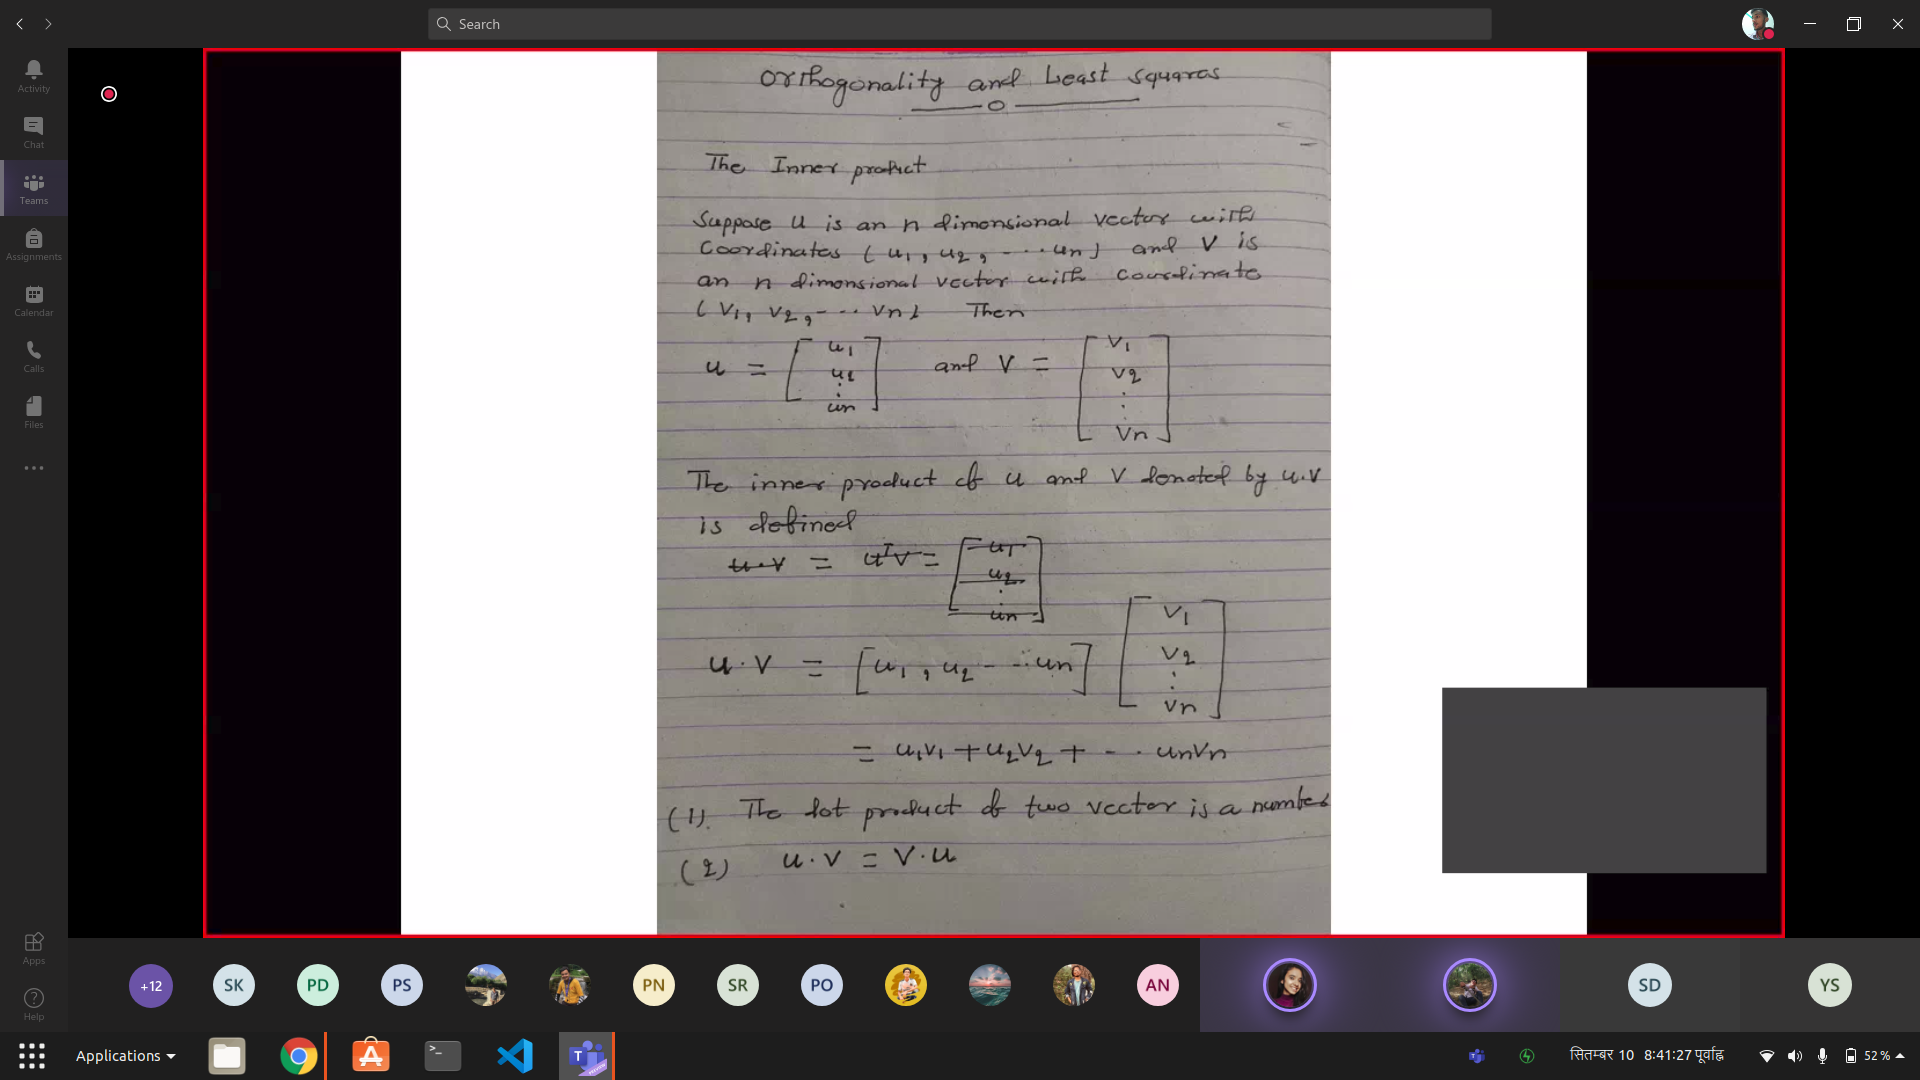 Search
Activity
Chat
Teams
Assignments
Calendar
Calls
Files
Apps
Help
Orthogonality and Least squares
The Inner product
Suppose u is an n dimensional vector with
Coordinates (u1, u2, - ... un) and V is
an n dimensional vector with coordinate
(V1, V2, - ... Vn) Then
u = [ u1 u2 ⋮ un ] and V = [ V1 V2 ⋮ Vn ]
The inner product of u and V denoted by u.V
is defined
u.V = uTV = [ u1 u2 ⋮ un ]
u . V = [u1, u2 - ... un] [ V1 V2 ⋮ Vn ]
= u1V1 + u2V2 + - .. unVn
(1). The dot product of two vector is a number
(2) u . V = V . u
+12
SK
PD
PS
PN
SR
PO
AN
SD
YS
Applications
सितम्बर 10 8:41:27 पूर्वाह्न
52 %